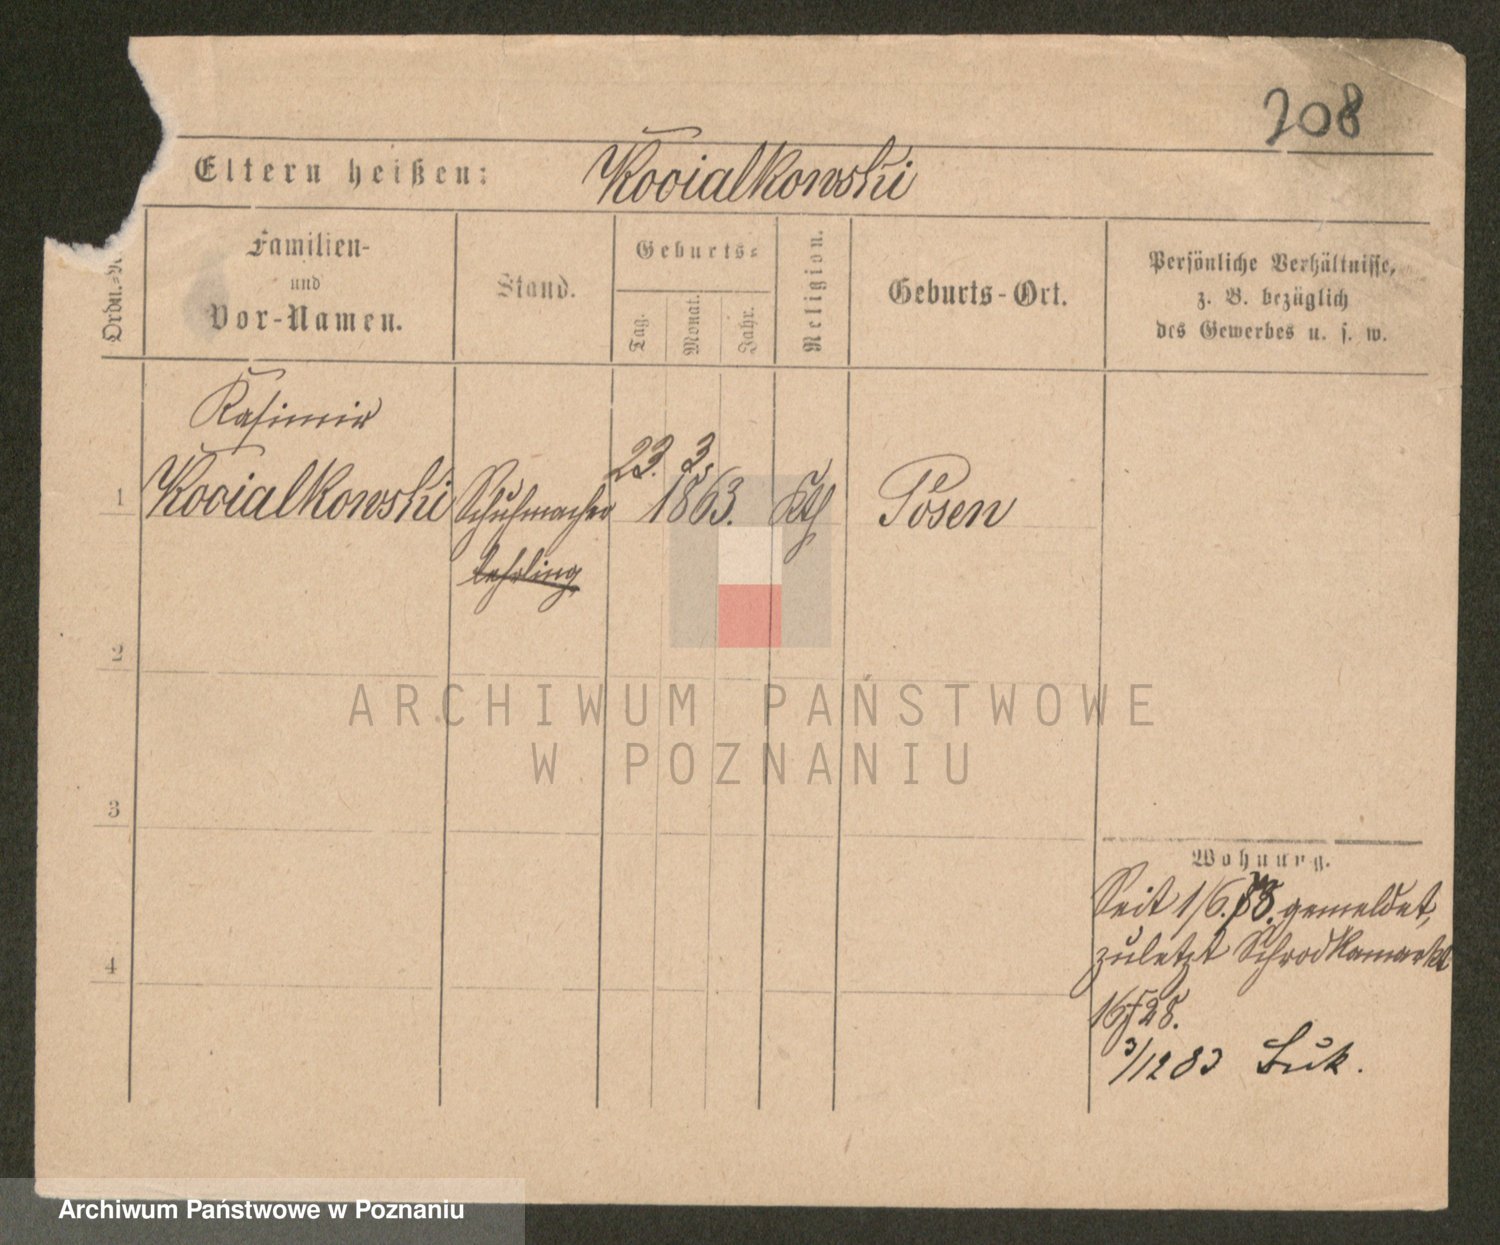 208
Eltern heißen: Kooialkowski
Ordn.=N.
Familien-
und
Vor-Namen.
Stand.
Geburts=
Tag.
Monat.
Jahr.
Religion.
Geburts-Ort.
Persönliche Verhältnisse,
z. B. bezüglich
des Gewerbes u. s. w.
Kasimir
23. 3.
1 Kooialkowski Schuhmacher 1863. Kth Posen
lehrling
2
ARCHIWUM PAŃSTWOWE
W POZNANIU
3
Wohnung.
Seit 1/6. gemeldet,
4
zuletzt Schrodkamarkt
28.
3/12 83 Buk.
Archiwum Państwowe w Poznaniu